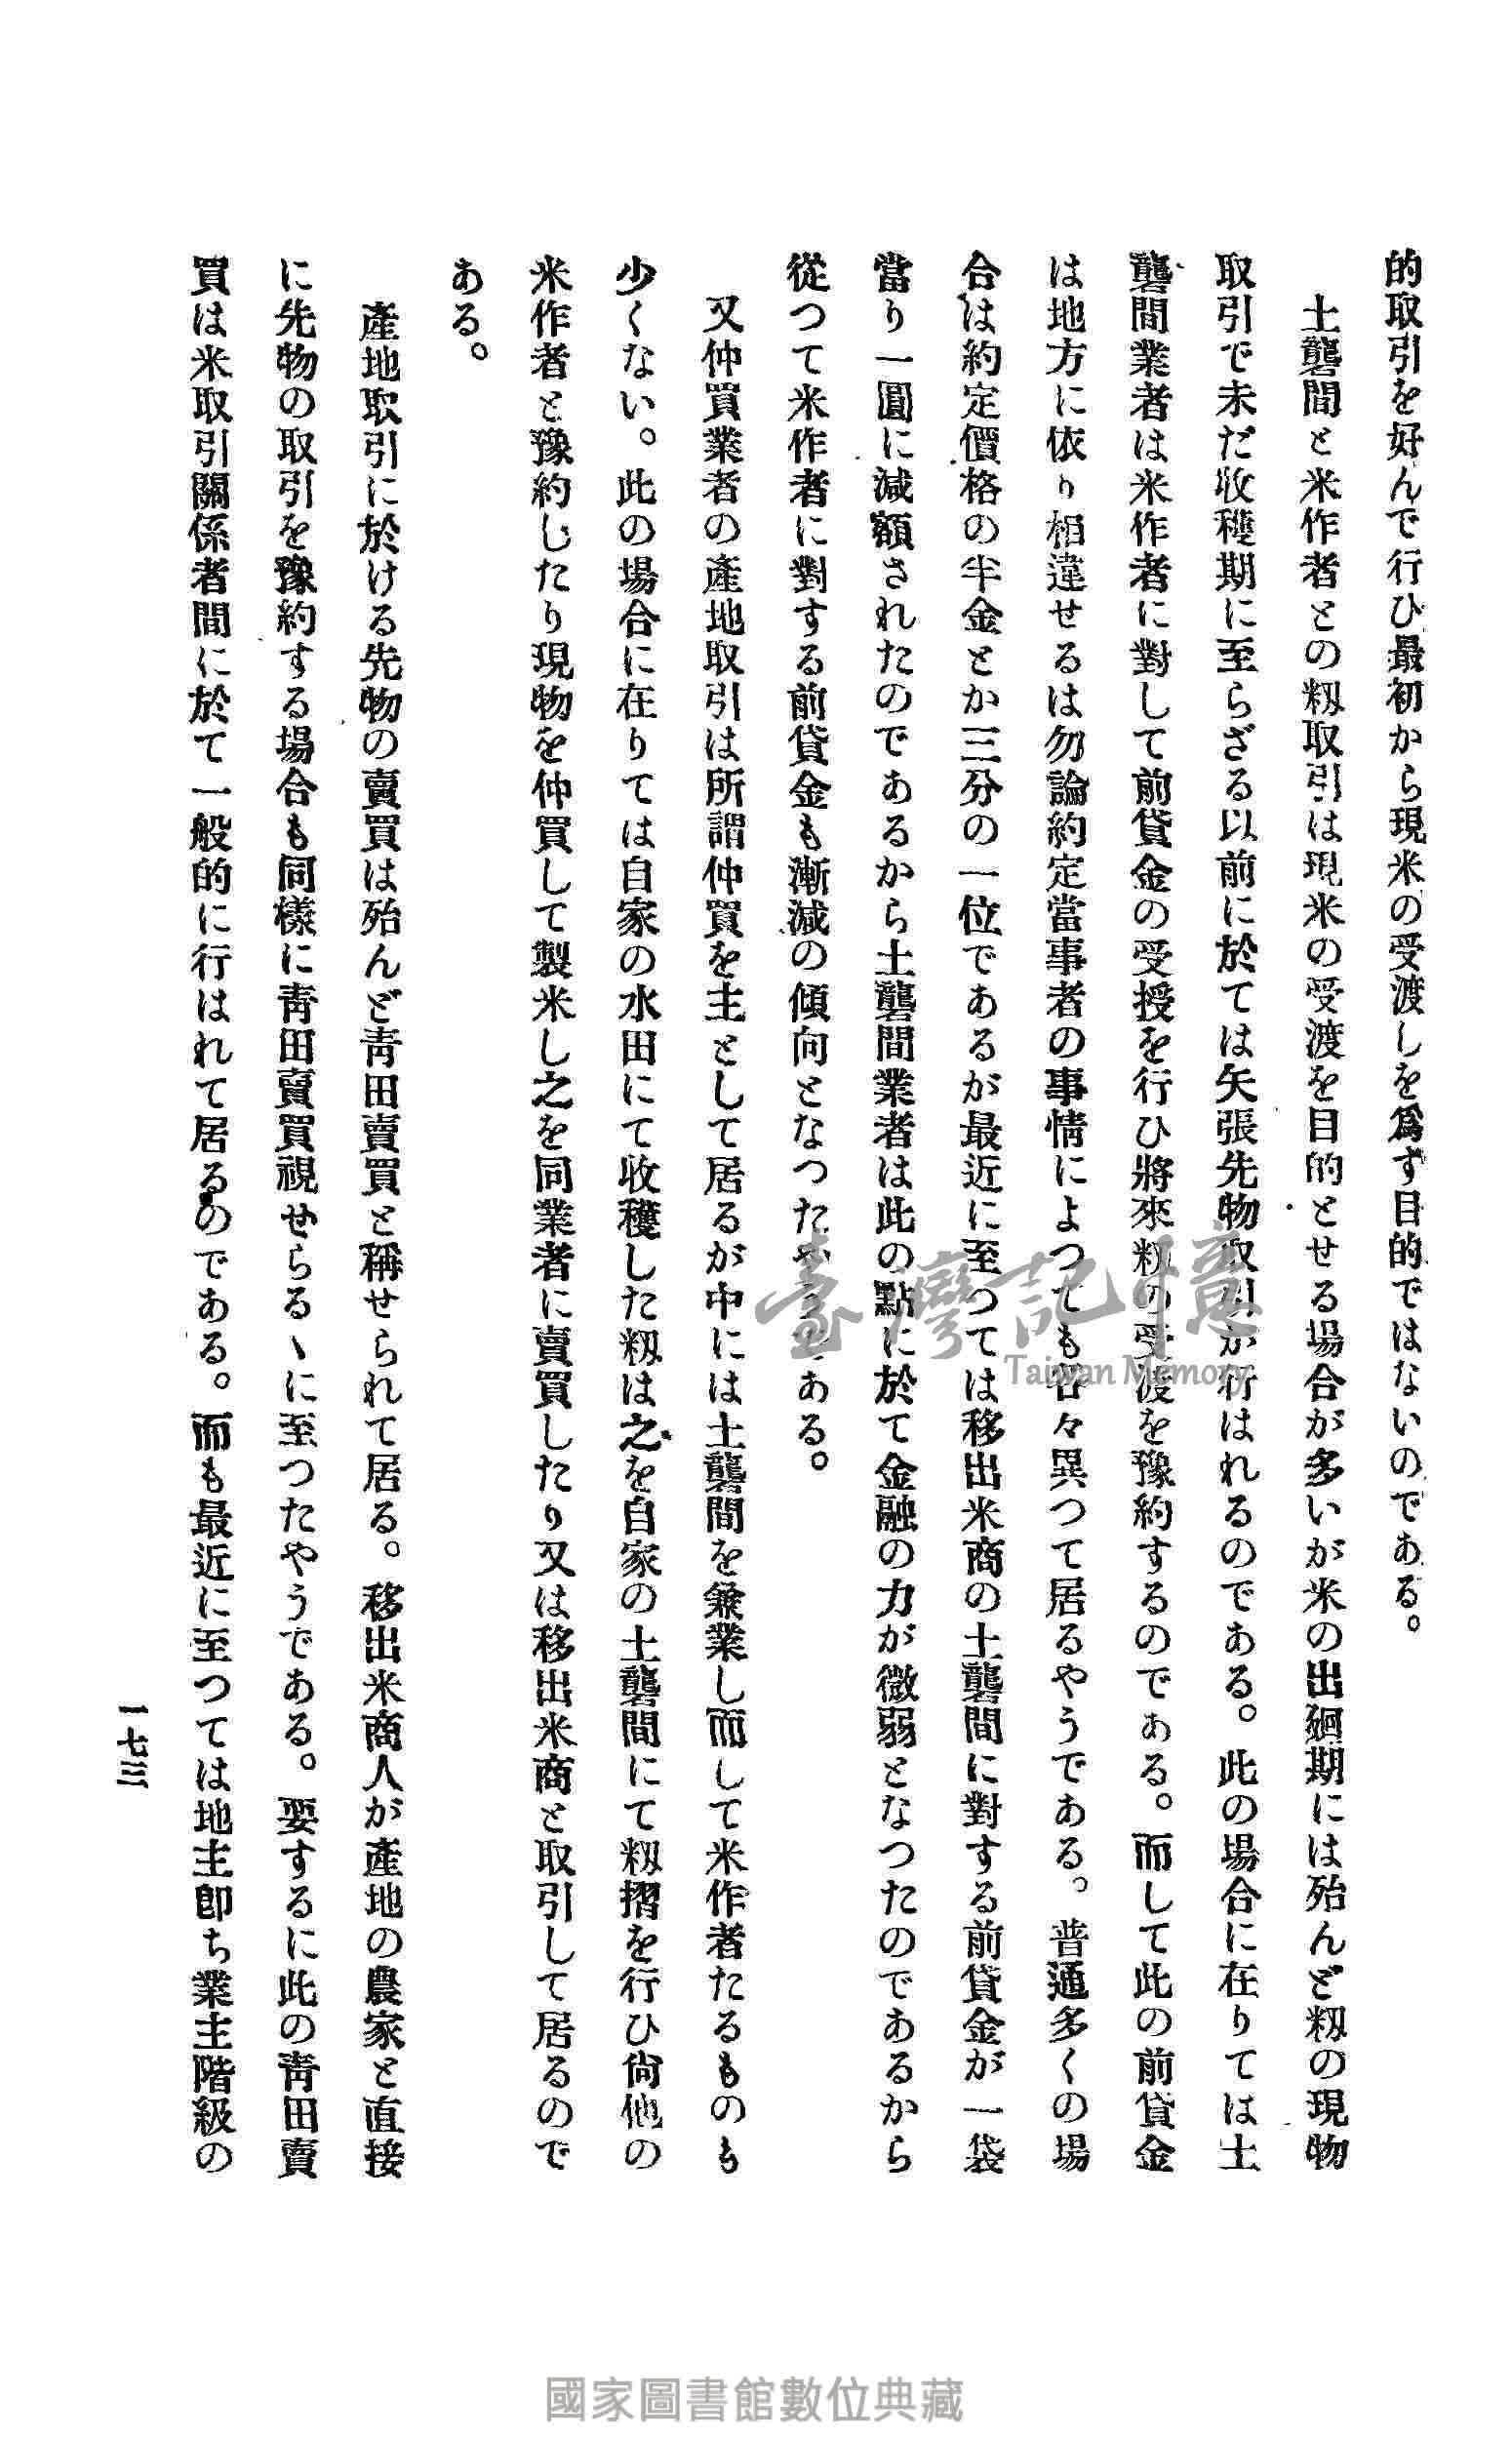 的取引を好んで行ひ最初から現米の受渡しを爲す目的ではないのである。
土礱間と米作者との籾取引は現米の受渡を目的とせる場合が多いが米の出廻期には殆んど籾の現物
取引で未だ收穫期に至らざる以前に於ては矢張先物取引が行はれるのである。此の場合に在りては土
礱間業者は米作者に對して前貸金の受授を行ひ將來籾の受渡を豫約するのである。而して此の前貸金
は地方に依り相違せるは勿論約定當事者の事情によつても各々異つて居るやうである。普通多くの場
合は約定價格の半金とか三分の一位であるが最近に至つては移出米商の土礱間に對する前貸金が一袋
當り一圓に減額されたのであるから土礱間業者は此の點に於て金融の力が微弱となつたのであるから
從つて米作者に對する前貸金も漸減の傾向となつたやうである。
又仲買業者の產地取引は所謂仲買を主として居るが中には土礱間を兼業し而して米作者たるものも
少くない。此の場合に在りては自家の水田にて收穫した籾は之を自家の土礱間にて籾摺を行ひ尙他の
米作者と豫約したり現物を仲買して製米し之を同業者に賣買したり又は移出米商と取引して居るので
ある。
產地取引に於ける先物の賣買は殆んど靑田賣買と稱せられて居る。移出米商人が產地の農家と直接
に先物の取引を豫約する場合も同樣に靑田賣買視せらるヽに至つたやうである。要するに此の靑田賣
買は米取引關係者間に於て一般的に行はれて居るのである。而も最近に至つては地主卽ち業主階級の
一七三
臺灣記憶
Taiwan Memory
國家圖書館數位典藏